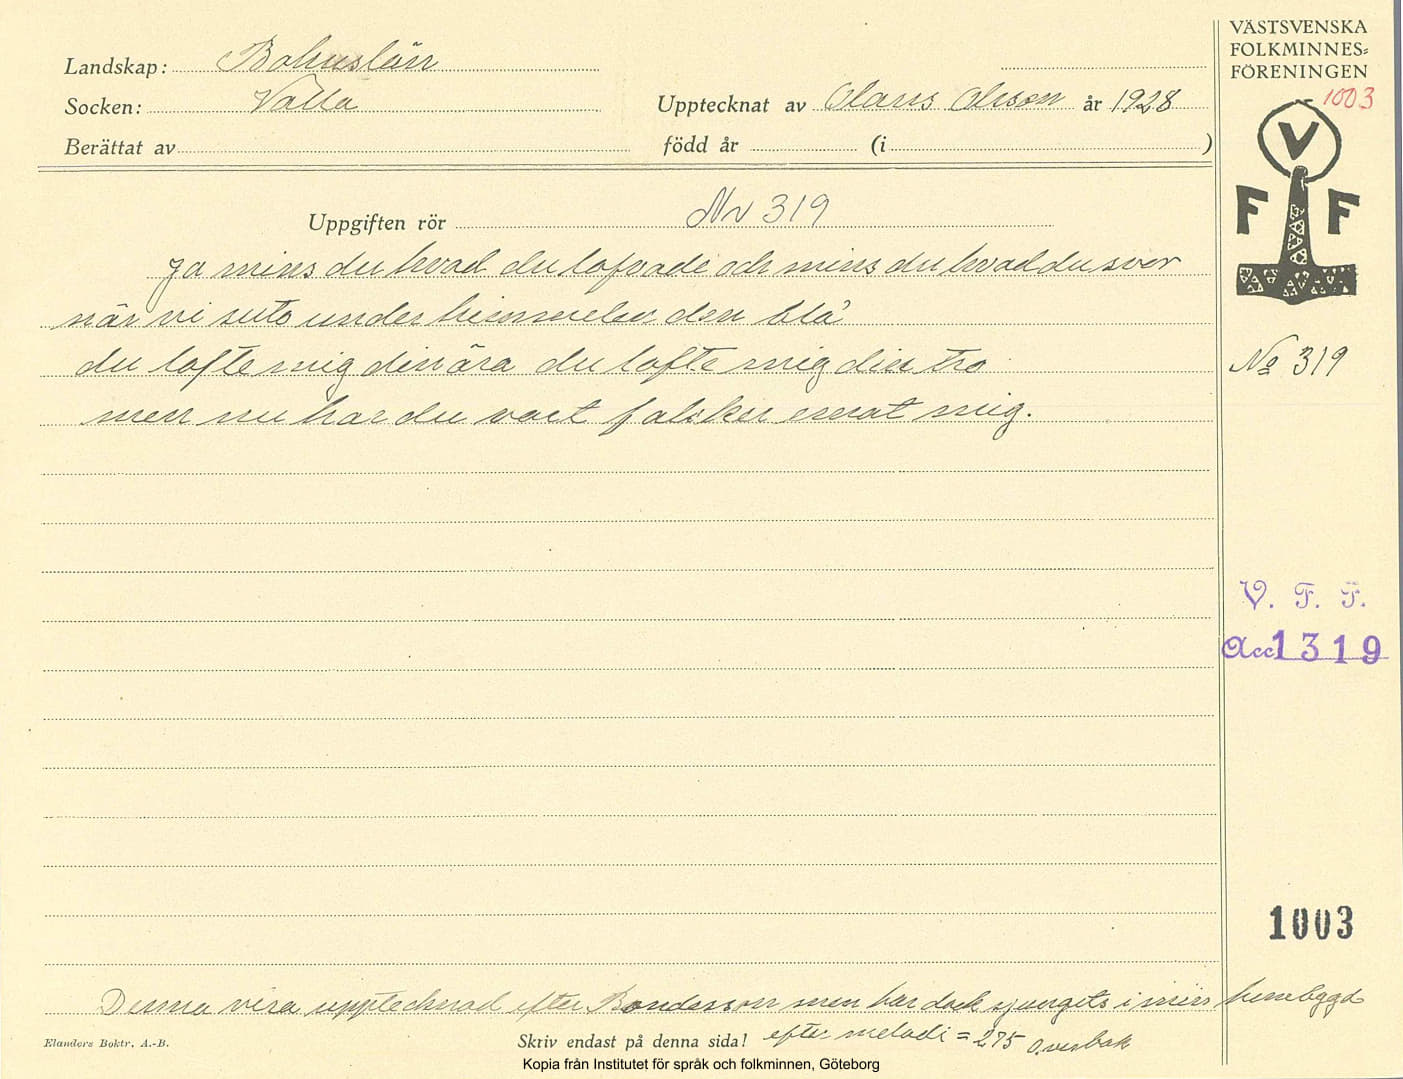 Landskap: Bohuslän
Socken: Valla
Upptecknat av Olaus Olsson år 1928
Berättat av
född år (i )
VÄSTSVENSKA
FOLKMINNES-
FÖRENINGEN
1003
V
F F
Uppgiften rör Nr 319
Ja mins du hvad du lofvade och mins du hvad du svor
när vi suto under himmelen den blå
du lofte mig din ära du lofte mig din tro
men nu har du vart falsker emot mig.
No 319
V. F. F.
Acc 1319
1003
Denna visa upptecknad efter Bondesson men har dock sjungets i min hembygd
efter melodi = 275
Elanders Boktr. A.-B.
Skriv endast på denna sida!
Kopia från Institutet för språk och folkminnen, Göteborg